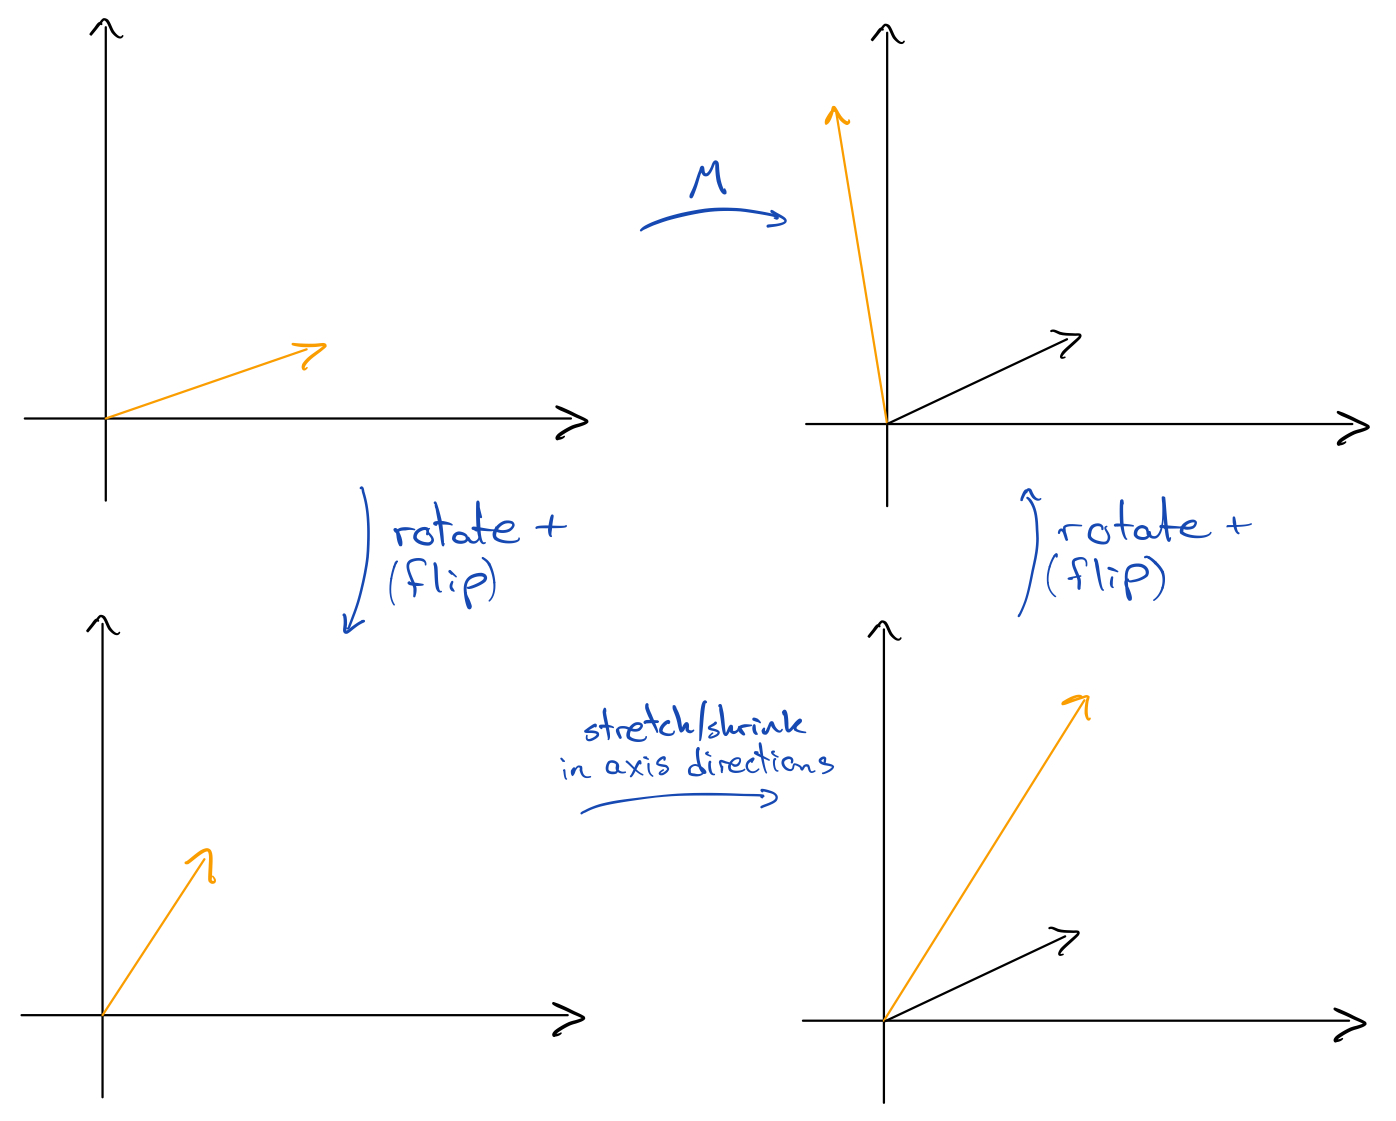 M
rotate +
(flip)
rotate +
(flip)
stretch/shrink
in axis directions